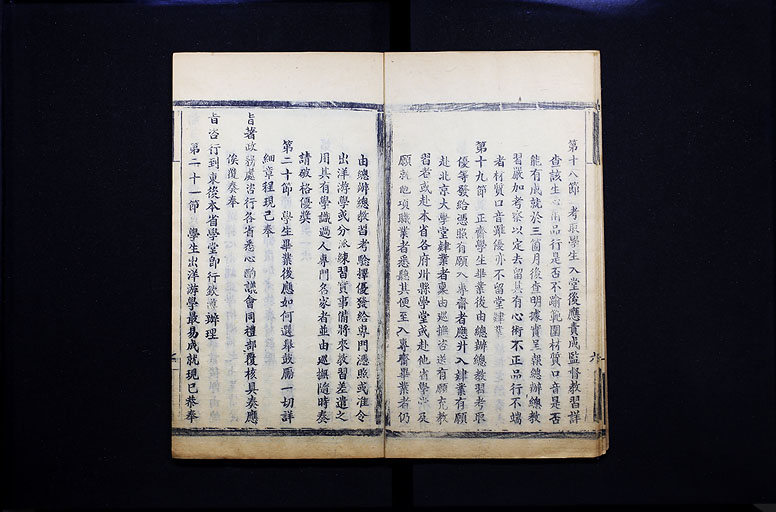 第十八節 考取學生入堂後應責成監督教習詳
查該生心術品行是否不踰範圍材質口音是否
能有成就於三箇月後查明據實呈報總辦總教
習嚴加考察以定去留其有心術不正品行不端
者材質口音雖優亦不留堂肄業
第十九節 正齋學生畢業後由總辦總教習考取
優等發給憑照有願入專齋者應升入肄業有願
赴北京大學堂肄業者稟由巡撫咨送有願充教
習者或赴本省各府州縣學堂或赴他省學堂及
願就他項職業者悉聽其便至入專齋畢業者仍
由總辦總教習考驗擇優發給專門憑照或准令
出洋游學或分派練習實事備將來教習差遣之
用其有學識過人專門名家者並由巡撫隨時奏
請破格優獎
第二十節 學生畢業後應如何選舉鼓勵一切詳
細章程現已奉
旨著政務處咨行各省悉心酌議會同禮部覆核具奏應
俟覆奏奉
旨咨行到東後本省學堂即行欽遵辦理
第二十一節 學生出洋游學最易成就現已恭奉